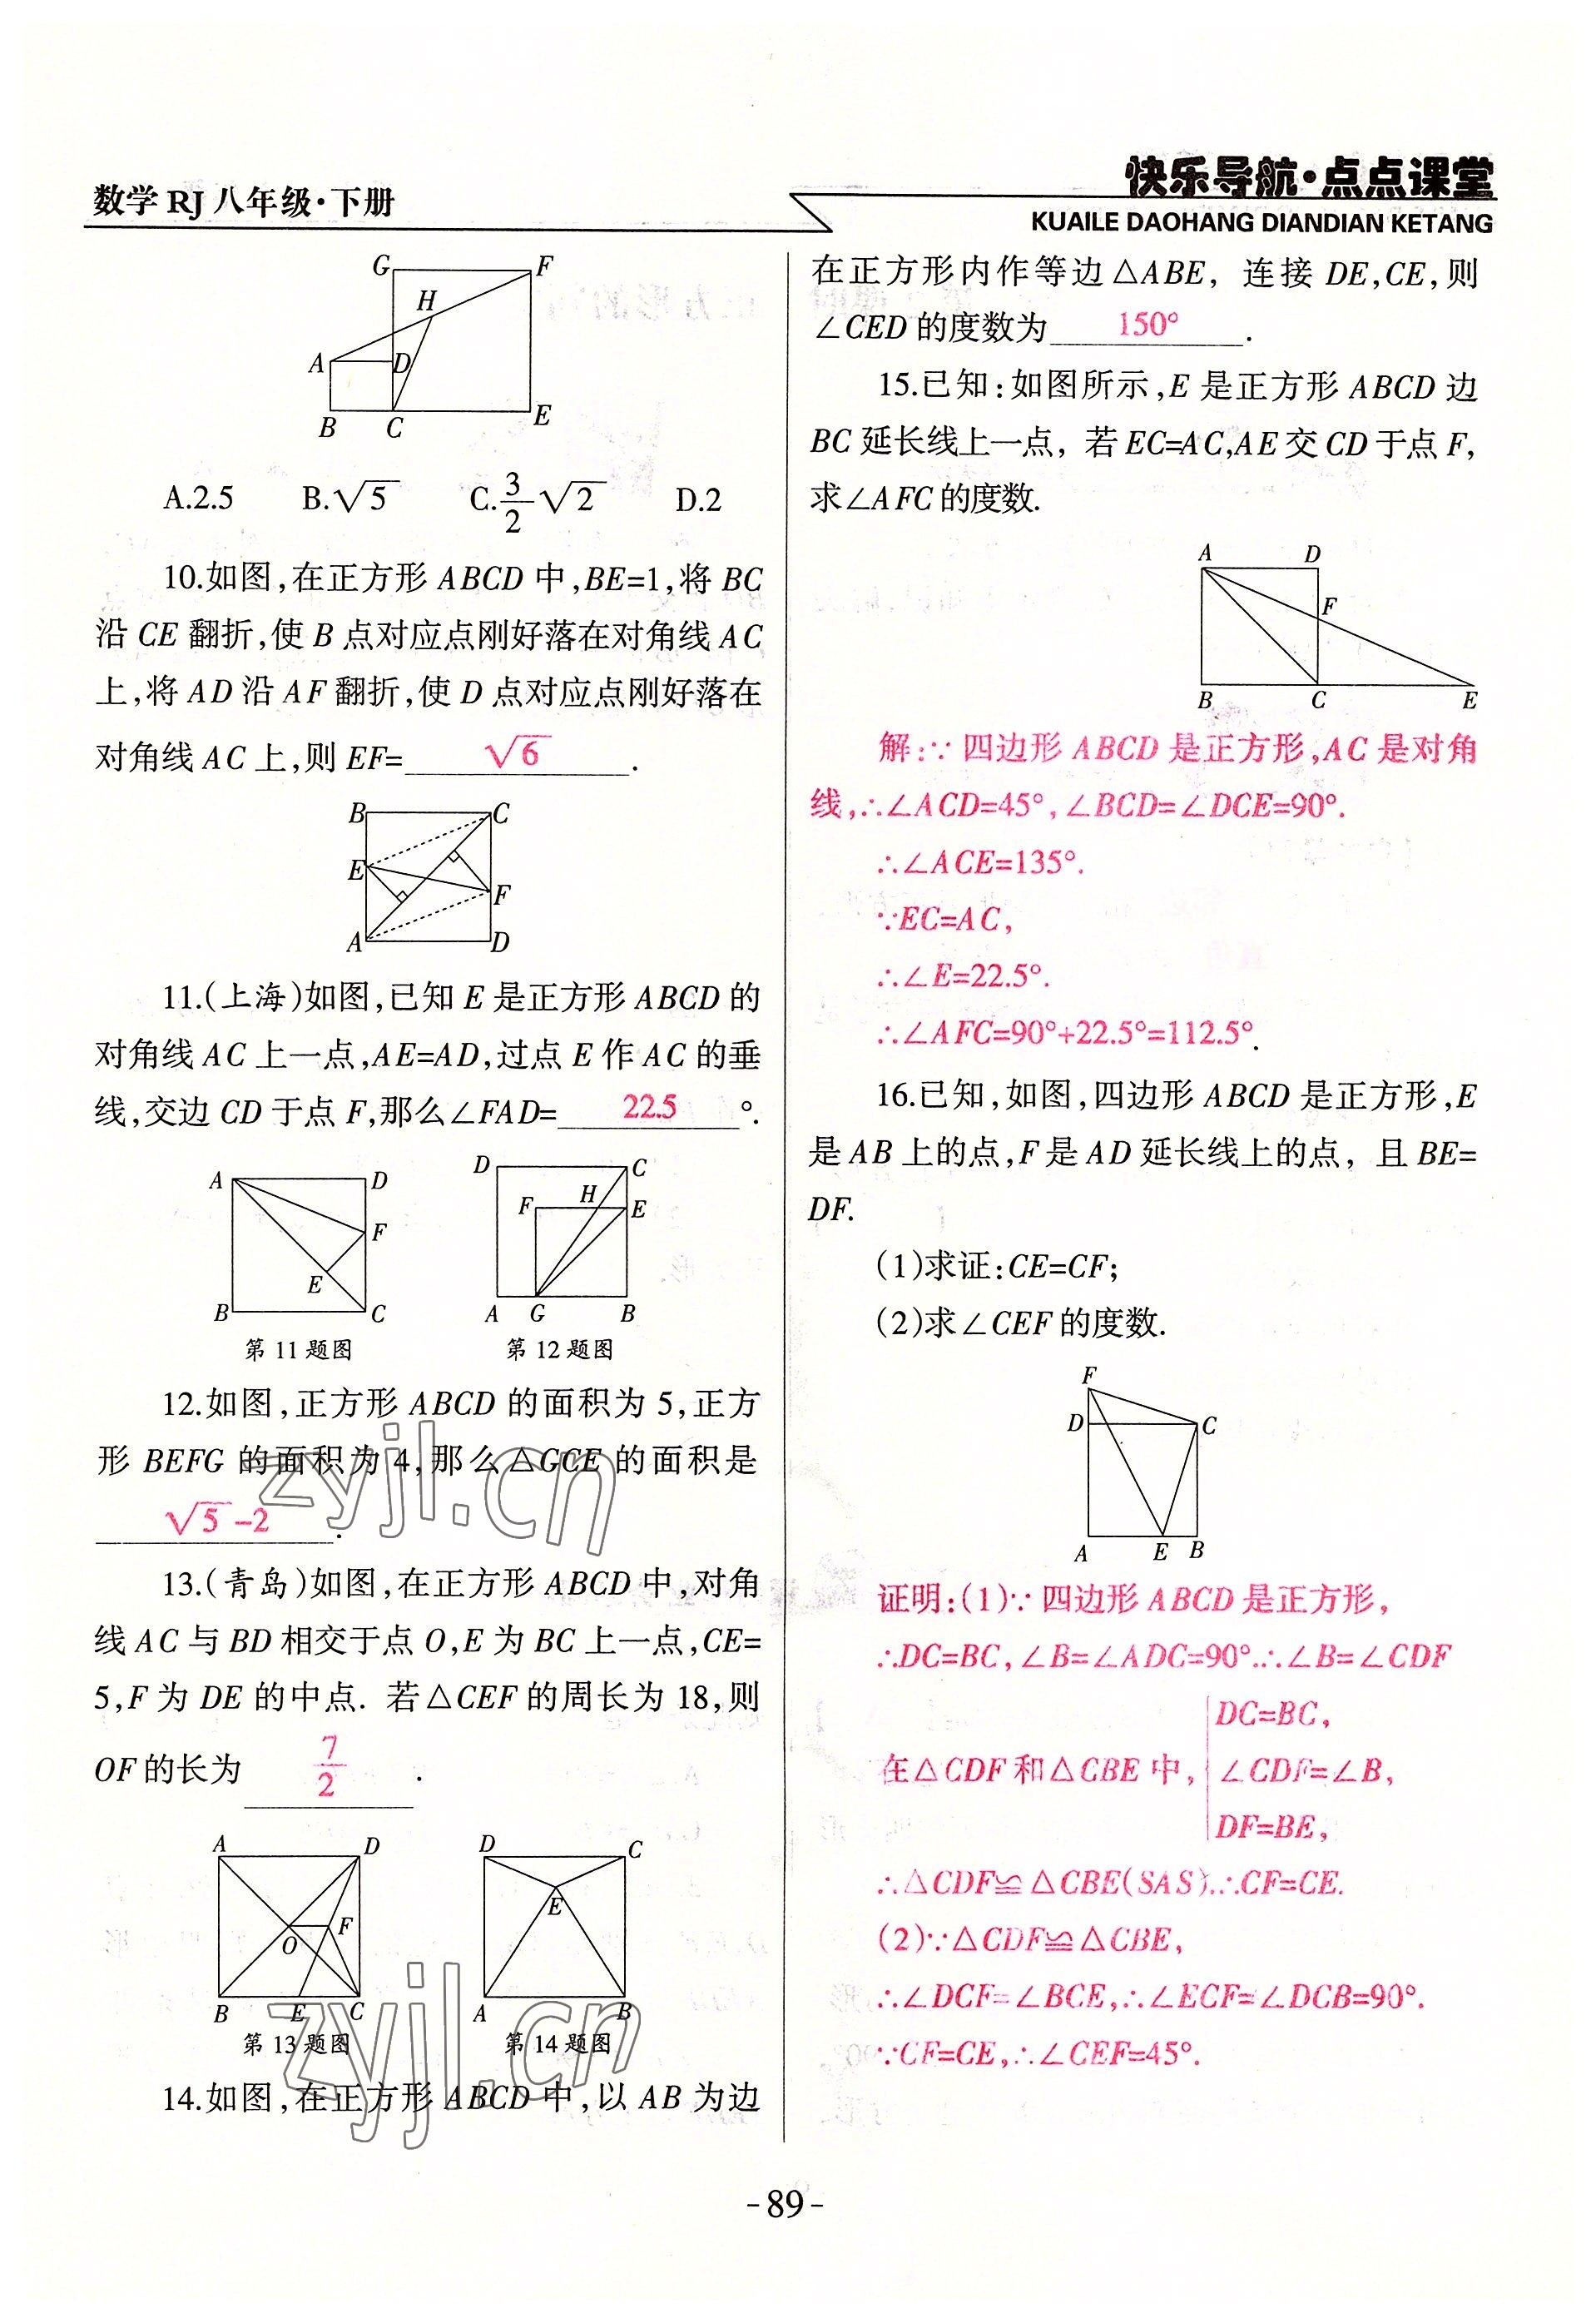 数学 RJ 八年级·下册
快乐导航·点点课堂
KUAILE DAOHANG DIANDIAN KETANG
G F H A D B C E
A.2.5 B.√5 C.3/2 √2 D.2
10.如图,在正方形 ABCD 中,BE=1,将 BC
沿 CE 翻折,使 B 点对应点刚好落在对角线 AC
上,将 AD 沿 AF 翻折,使 D 点对应点刚好落在
对角线 AC 上,则 EF= √6 .
B C E F A D
11.(上海)如图,已知 E 是正方形 ABCD 的
对角线 AC 上一点,AE=AD,过点 E 作 AC 的垂
线,交边 CD 于点 F,那么∠FAD= 22.5 °.
A D F E B C
D C F H E A G B
第 11 题图 第 12 题图
12.如图,正方形 ABCD 的面积为 5,正方
形 BEFG 的面积为 4,那么△GCE 的面积是
√5 -2 .
13.(青岛)如图,在正方形 ABCD 中,对角
线 AC 与 BD 相交于点 O,E 为 BC 上一点,CE=
5,F 为 DE 的中点. 若△CEF 的周长为 18,则
OF 的长为 7/2 .
A D F O B E C
D C E A B
第 13 题图 第 14 题图
14.如图,在正方形 ABCD 中,以 AB 为边
在正方形内作等边△ABE, 连接 DE,CE,则
∠CED 的度数为 150° .
15.已知:如图所示,E 是正方形 ABCD 边
BC 延长线上一点, 若 EC=AC,AE 交 CD 于点 F,
求∠AFC 的度数.
A D F B C E
解:∵四边形 ABCD 是正方形,AC 是对角
线,∴∠ACD=45°,∠BCD=∠DCE=90°.
∴∠ACE=135°.
∵EC=AC,
∴∠E=22.5°.
∴∠AFC=90°+22.5°=112.5°.
16.已知,如图,四边形 ABCD 是正方形,E
是 AB 上的点,F 是 AD 延长线上的点, 且 BE=
DF.
(1)求证:CE=CF;
(2)求∠CEF 的度数.
F D C A E B
证明:(1)∵四边形 ABCD 是正方形,
∴DC=BC,∠B=∠ADC=90°.∴∠B=∠CDF
DC=BC,
在△CDF 和△CBE 中, ∠CDF=∠B,
DF=BE,
∴△CDF≌△CBE(SAS).∴CF=CE.
(2)∵△CDF≌△CBE,
∴∠DCF=∠BCE,∴∠ECF=∠DCB=90°.
∵CF=CE,∴∠CEF=45°.
zyjl.cn
zyjl.cn
-89-